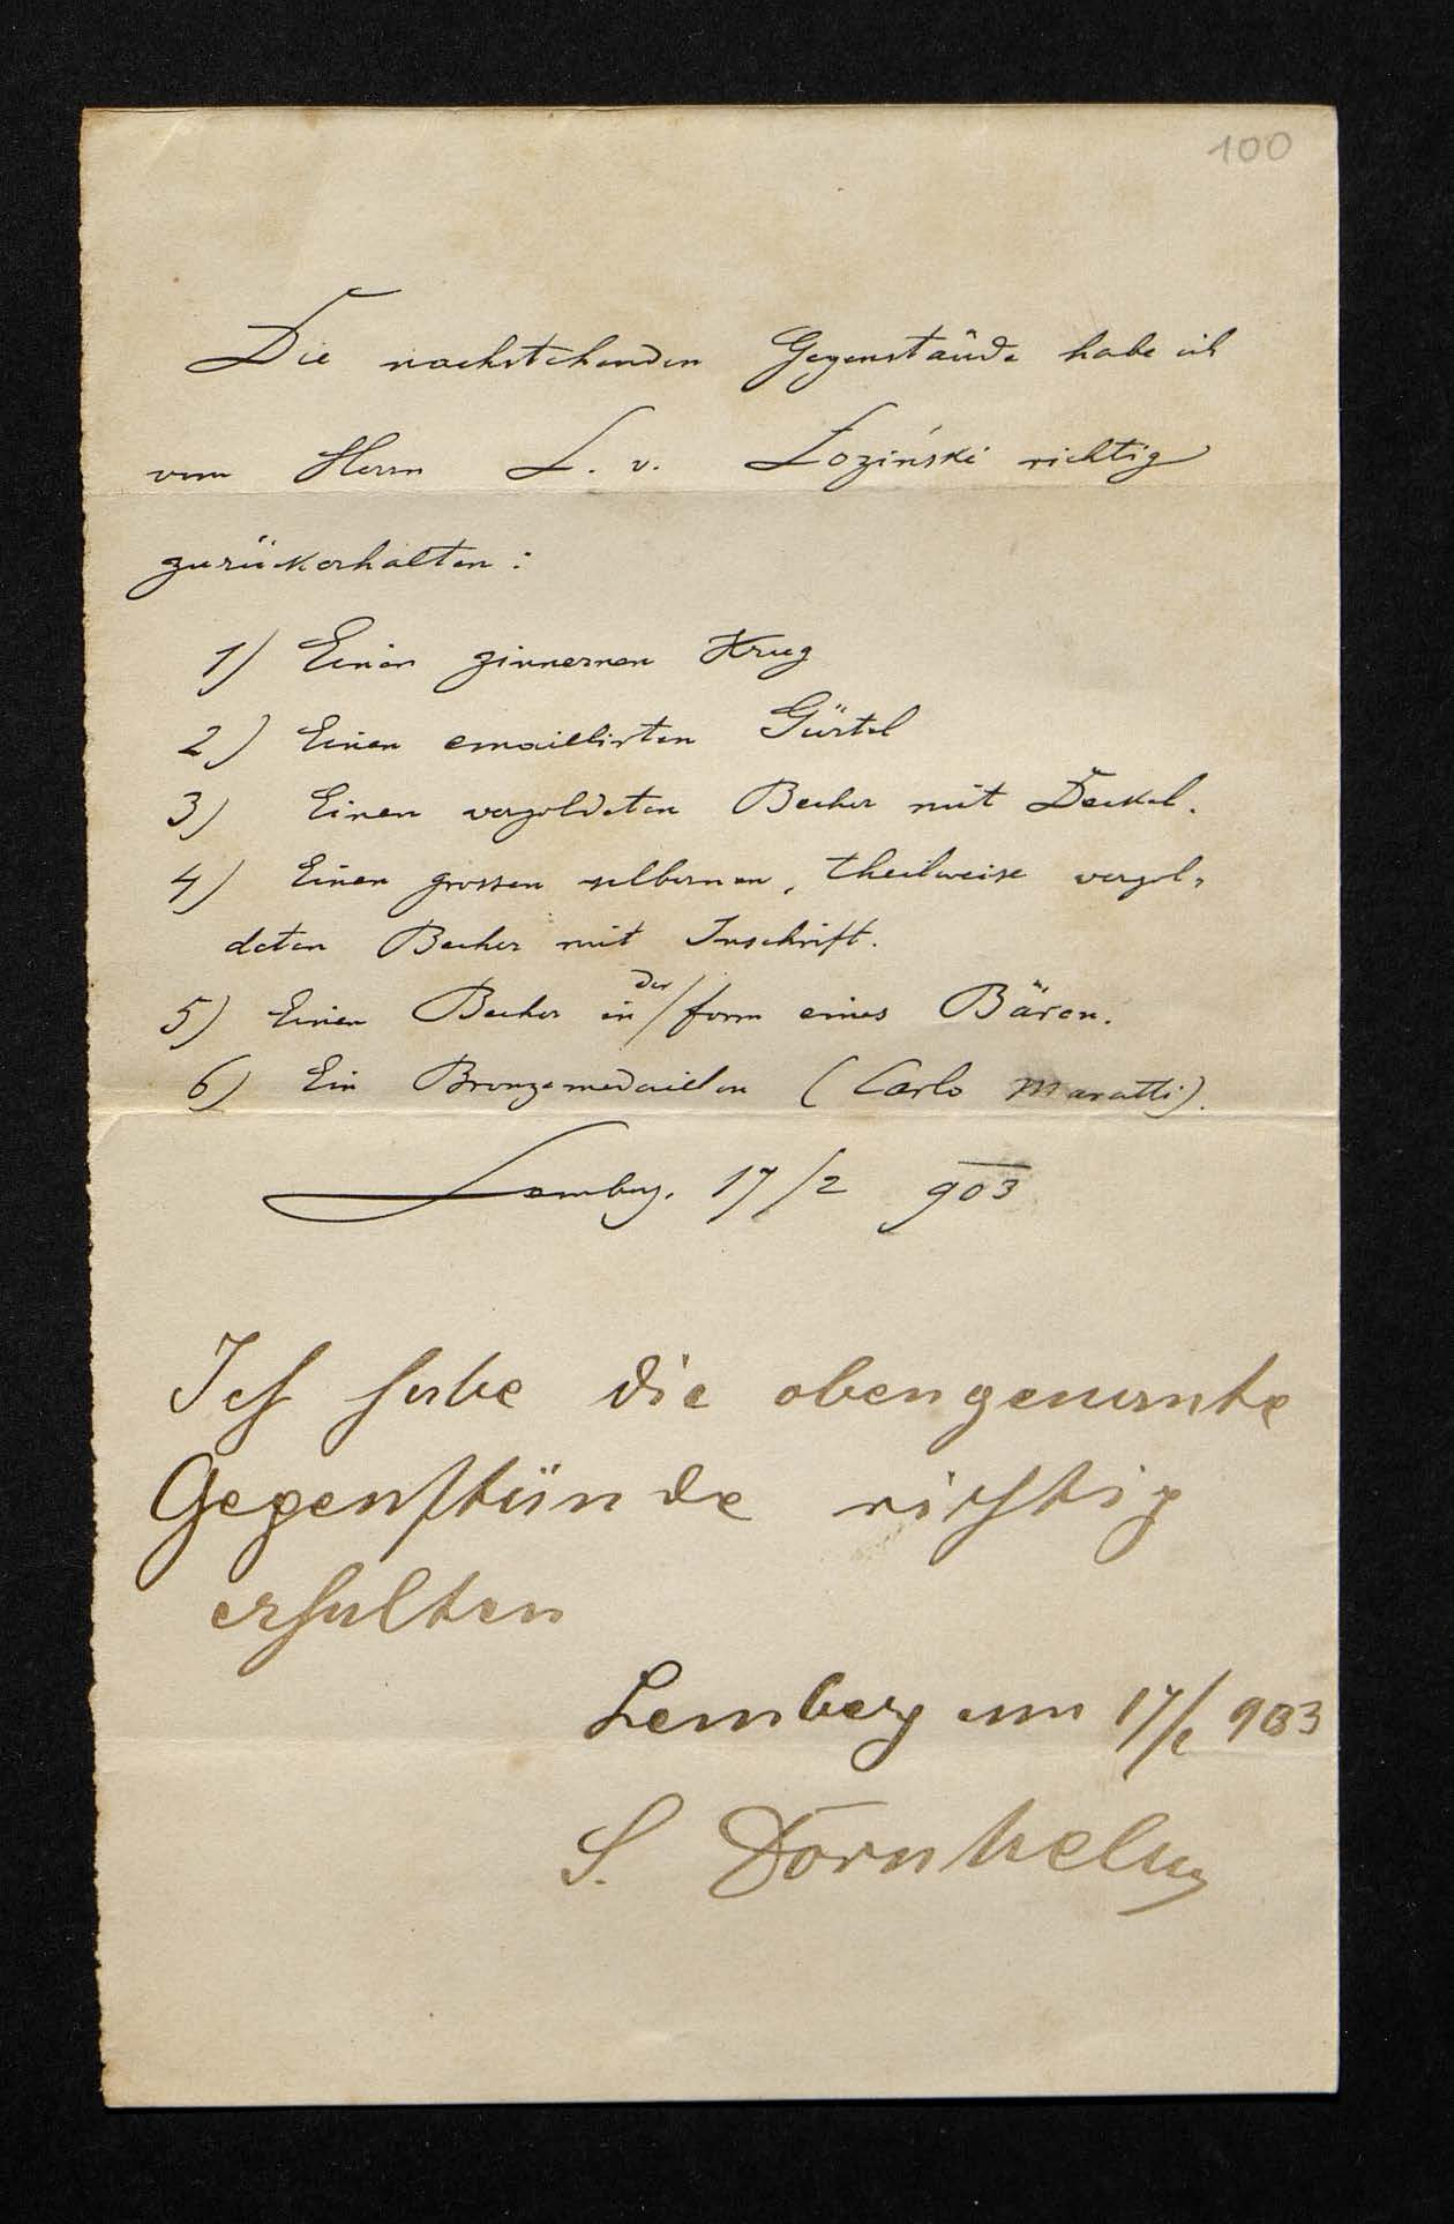 100
Die nachstehenden Gegenstände habe ich
vom Herrn L. v. Łoziński richtig
zurückerhalten:
1) Einen zinnernen Krug
2) Einen emaillirten Gürtel
3) Einen vergoldeten Becher mit Deckel.
4) Einen grossen silbernen, theilweise vergol-
deten Becher mit Inschrift.
5) Einen Becher in der form eines Bären.
6) Ein Bronzemedaillon (Carlo Maratti).
Lemberg. 17/2 903
Ich habe die obengenante
Gegenstände richtig
erhalten
Lemberg am 17/2 903
S. Dornhelm